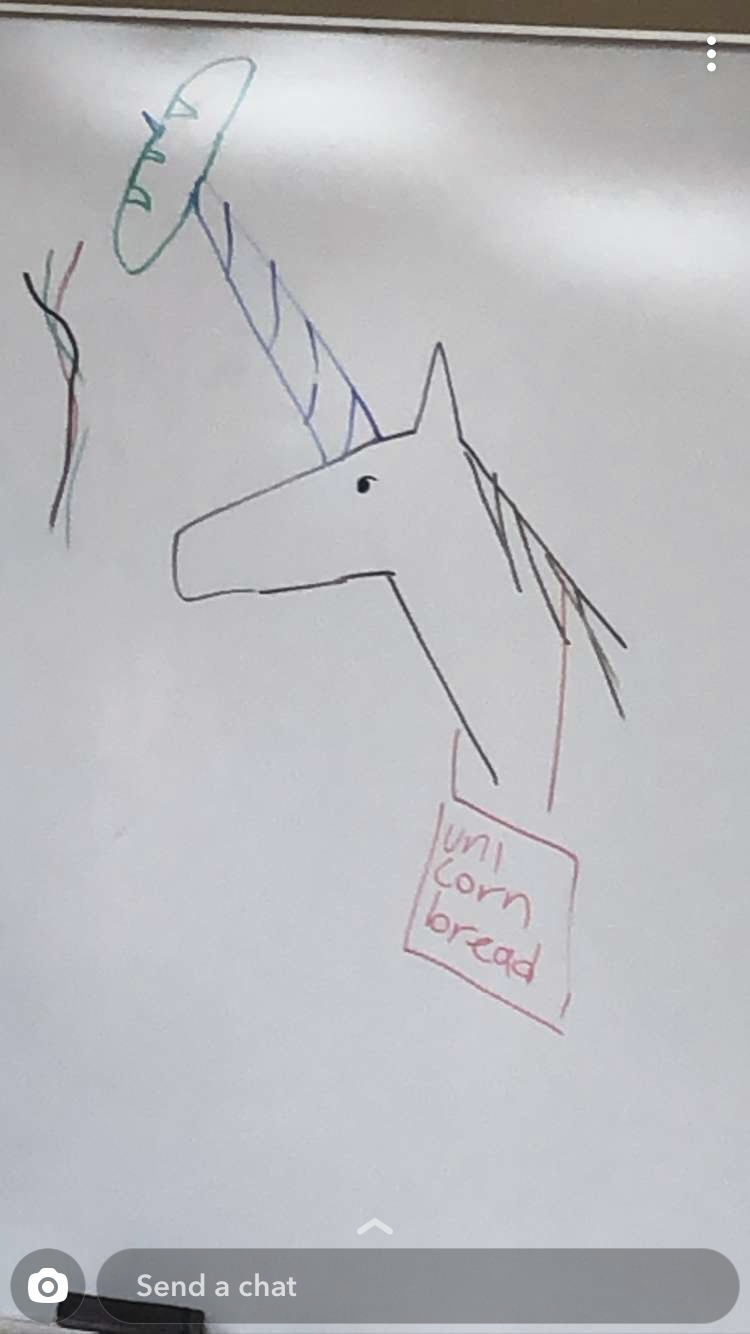 uni
corn
bread
Send a chat